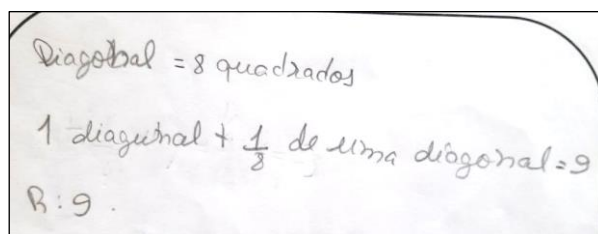 Diagonal = 8 quadrados
1 diagunal + 1/8 de uma diagonal = 9
R: 9.